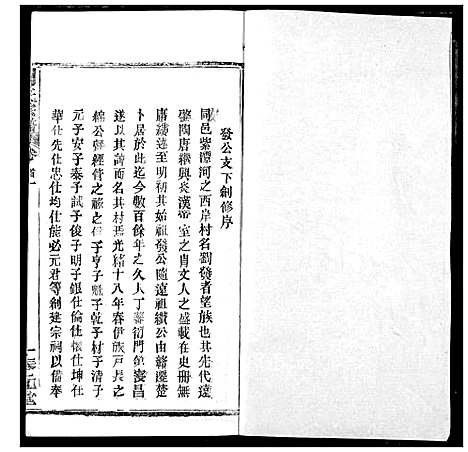 發公支下創修序
同邑紫潭河之西岸村名劉發者望族也其先代遠
肇陶唐繼興炎漢帝室之胄文人之盛載在史册無
庸縷述至明初其始祖發公隨遠祖纘公由贛遷楚
卜居於此迄今數百餘年之久人丁蕃衍門第寖昌
遂以其諱而名其村焉光緒十八年春伊族戶長之
綿公督經營之祿之 子亨子 子乾子材子清子
元子安子泰子誠子俊子明子銀仕倫仕懷仕坤仕
華仕先仕忠仕均仕能必元君等創建宗祠以備奉